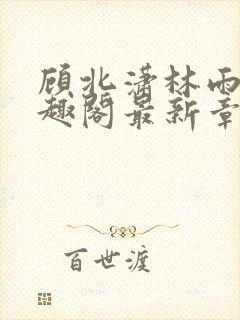 顾北潇林雨
趣阁最新章
百世渡